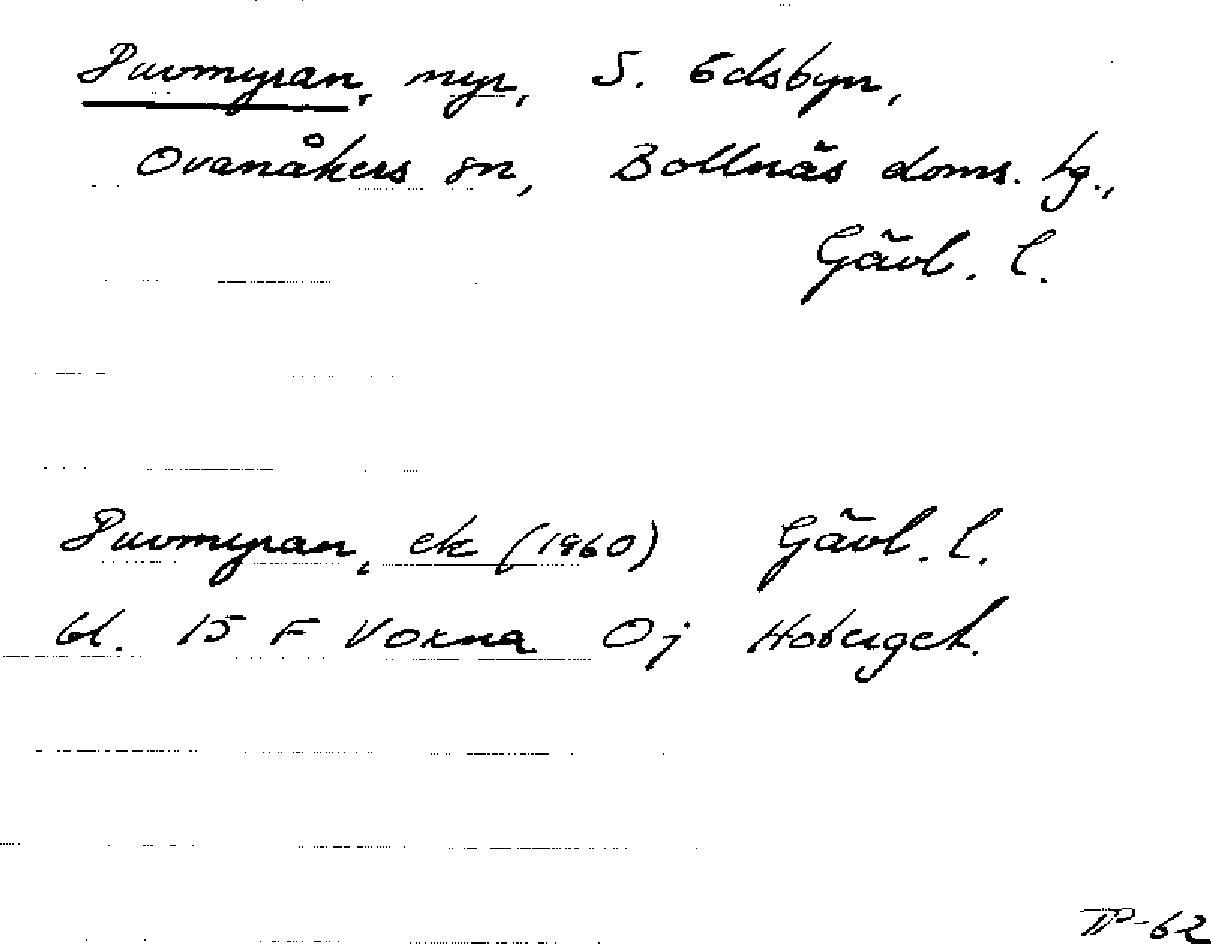 Puvmyran, myr, S. Edsbyn,
Ovanåkers sn, Bollnäs doms. hg.,
Gävl. l.
Puvmyran, ek (1960) Gävl. l.
bl. 15 F Voxna 0j Hoberget.
TP-62